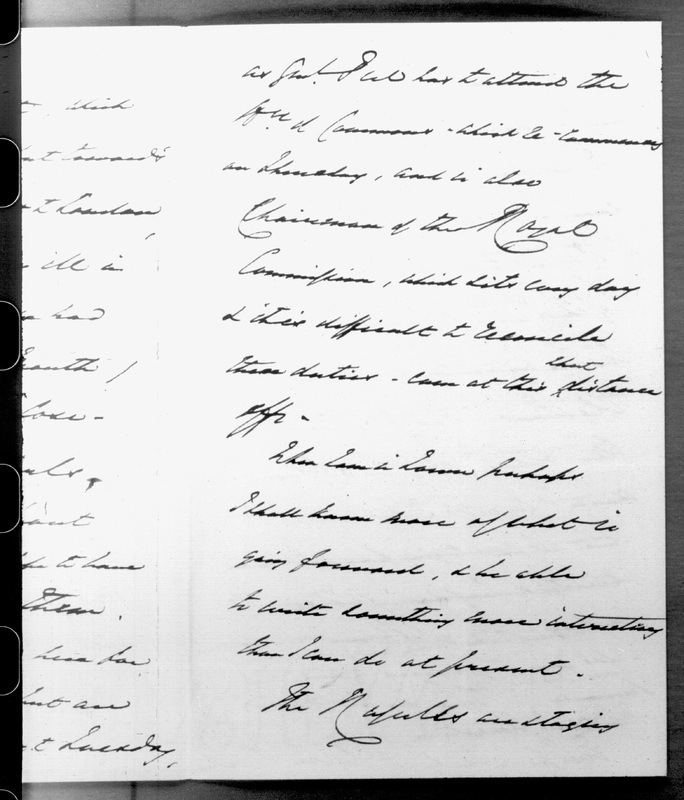 which
but towards
to London
ill in
had
South /
close -

about
to have
them.
here for
but are
Tuesday,
as Genl. Peel has to attend the
Hse. of Commons - which re-commences
on Thursday, and is also
Chairman of the Royal
Commission, which sits every day
& it is difficult to reconcile
these duties - even at this short distance
off -
When I am in Town perhaps
I shall know more of what is
going forward, & be able
to write something more interesting
than I can do at present.
The are staying